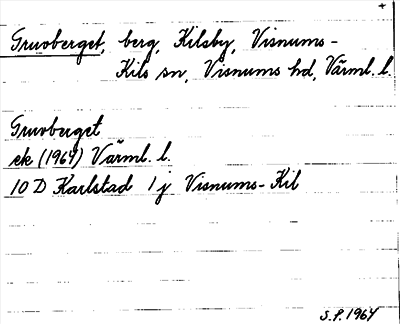 +
Gruvberget, berg, Kilsby, Visnums-
Kils sn, Visnums hd, Värml. l.
Gruvberget
ek (1964) Värml. l.
10 D Karlstad 1 j Visnums-Kil
S.P. 1964